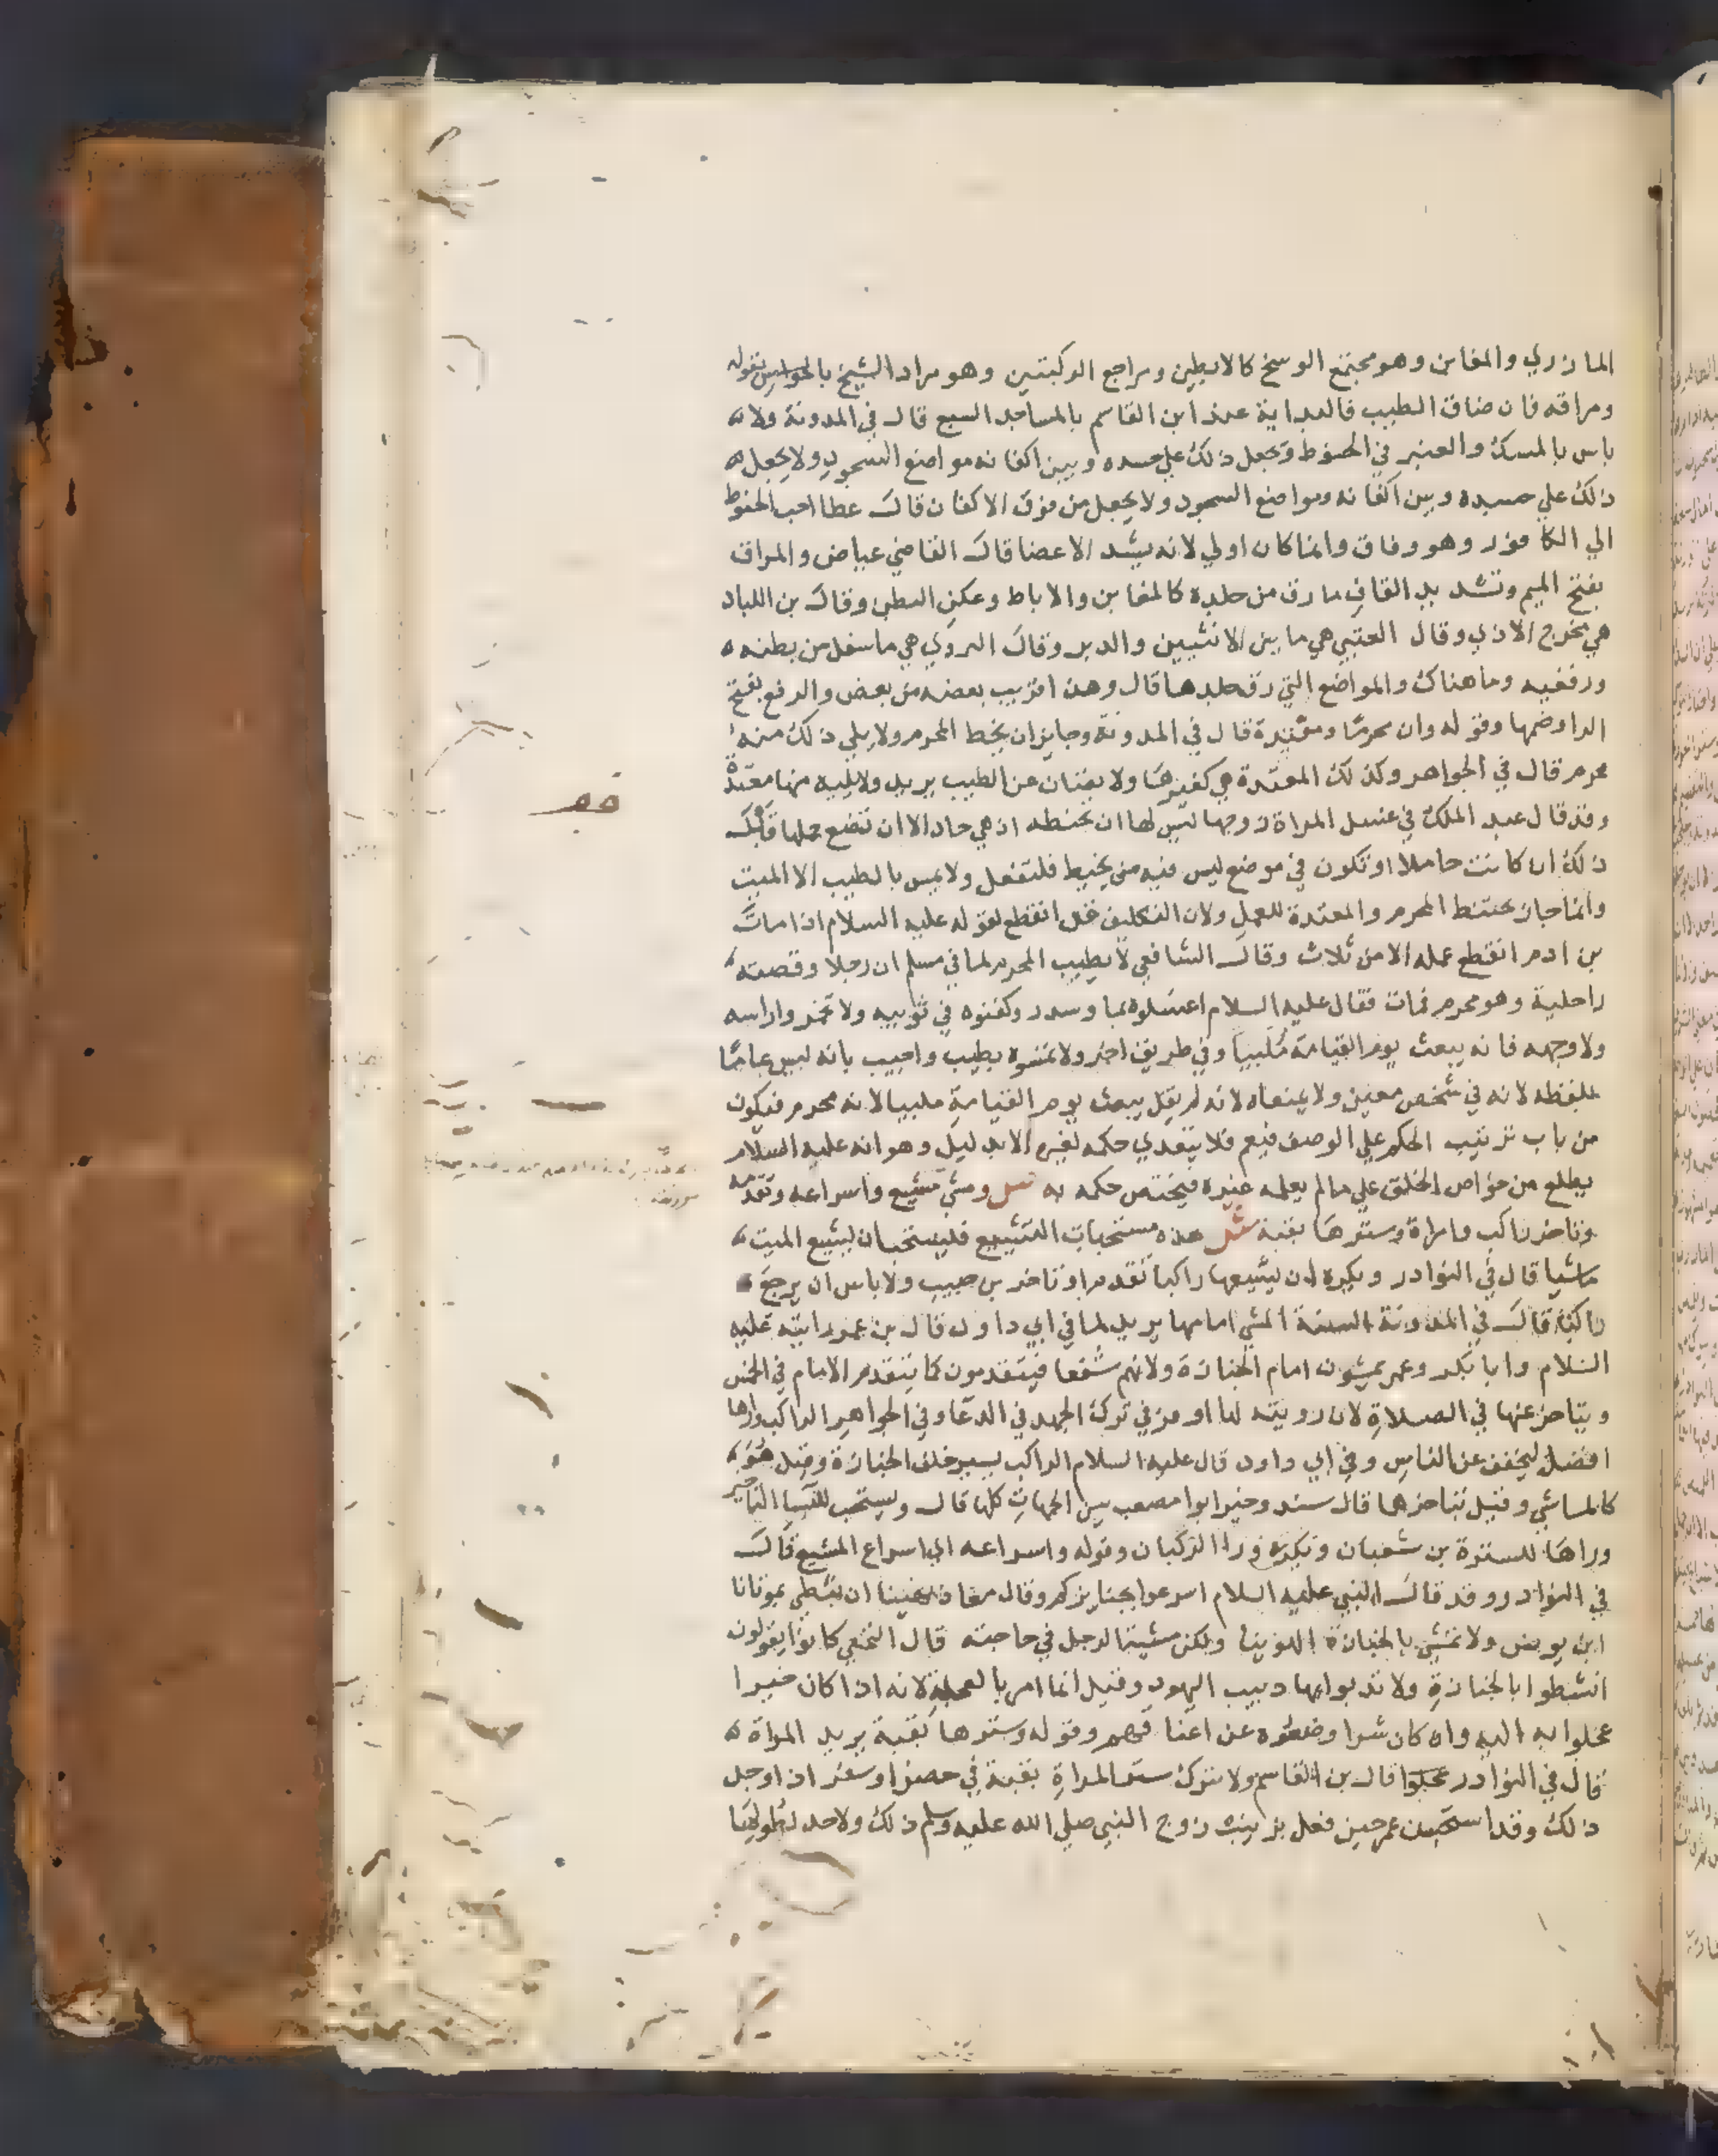 المازري والمغابن وهو مجتمع الوسخ كالابطين ومراجع الركبتين وهو مراد الشيخ بالحواس بقوله
ومراقه فان ضاق الطيب فالبداية عند ابن القاسم بالمساجد السبع قال في المدونة ولا
باس بالمسك والعنبر في الحنوط وتجعل ذلك على جسده وبين اكفانه مواضع السجود ولا يجعل
ذلك علي جسده وبين اكفانه ومواضع السجود ولا يجعل من فوق الاكفان قال عطا احب الحنوط
الي الكافور وهو وفاق وانما كان اولي لانه يشد الاعضا قال القاضي عياض والمراق
بفتح الميم وتشديد القاف ما رق من جلده كالمغابن والاباط وعكن البطن وقال بن اللباد
هي مخرج الاذي وقال العتبي هي ما بين الانثيين والدبر وقال الهروي هي ما سفل من بطنه
ورفغيه وما هناك والمواضع التي رق جلدها قال وهذا قريب بعضه من بعض والرفغ بفتح
الرا وضمها وقوله وان محرمًا ومعتدة قال في المدونة وجايز ان يحنط المحرم ولا يلي ذلك منه
محرم قال في الجواهر وكذلك المعتدة هي كغيرها ولا يصنان عن الطيب يريد ولا يليه منها معتدة
وقد قال عبد الملك في غسل المراة زوجها ليس لها ان تحنطه اذ هي حاد الا ان تضع حملها قبل
ذلك ان كانت حاملا او تكون في موضع ليس فيه من يحنط فلتفعل ولا يمس بالطيب الا الميت
وانما جاز تحنط المحرم والمعتدة للعمل ولان التكليف قد انقطع لقوله عليه السلام اذا مات
بن ادم انقطع عمله الا من ثلاث وقال الشافعي لا يطيب المحرم لما في مسلم ان رجلا وقصته
راحلته وهو محرم فمات فقال عليه السلام اغسلوه بما وسدر وكفنوه في ثوبيه ولا تخمروا راسه
ولا وجهه فانه يبعث يوم القيامة مُلبيا وفي طريق اخر ولا تمسوه بطيب واجيب بانه ليس عامًا
بلفظه لانه في شخص معين ولا بمعناه لانه لم يقل يبعث يوم القيامة ملبيا لانه محرم فيكون
من باب ترتيب الحكم علي الوصف فيعم فلا يتعدي حكمه لغيره الا بدليل وهو انه عليه السلام
يطلع من خواص الخلق علي ما لم يعلمه غيره فيختص حكمه به ومشي مشيع واسراعه وتقدمه
وتاخر راكب وامراة وسترها بقبة هذه مستحبات التشييع فليستحب ان يشيع الميت
ماشيا قال في النوادر ويكره ان يشيعها راكبا تقدم او تاخر بن حبيب ولا باس ان يرجع
راكبًا قال في المدونة السنة المشي امامها يريد لما في ابي داود قال بن عمر رايته عليه
السلام وابا بكر وعمر يمشون امام الجنازة ولانهم شُفعا فيتقدمون كما يتقدم الامام في الخمس
ويتاخر عنها في الصلاة لان رويته لها اوفر في ترك الجهد في الدعا وفي الجواهر الراكب وراها
افضل ليخفف عن الناس وفي ابي داود قال عليه السلام الراكب يسير خلف الجنازة وقيل هو
كالماشي وقيل يتاخرها قال سند وخير ابوا مصعب بين الجهات كلها قال ويستحب للنسا التاخير
وراها للسترة بن شعبان وتكره ورا الركبان وقوله واسراعه اي اسراع المشيع قال
في النوادر وقد قال النبي عليه السلام اسرعوا بجنايزكم وقال معاذ نهينا ان نبطي بموتانا
ابن يونس ولا تمشي بالجنازة الهوينا ولكن مشية الرجل في حاجته قال النخعي كانوا يقولون
انشطوا بالجنازة ولا تدبوا بها دبيب اليهود وقيل انما امر بالعجلة لانه اذا كان خيرا
عجلوا به اليه وان كان شرا وضعوه عن اعناقهم وقوله وسترها بقبة يريد المراة
قال في النوادر قال بن القاسم ولا تترك ستر المراة بقبة في حضر او سفر اذا وجل
ذلك وقد استحسن عمر حين فعل بزينب زوج النبي صلي الله عليه وسلم ذلك ولا حد لطولها